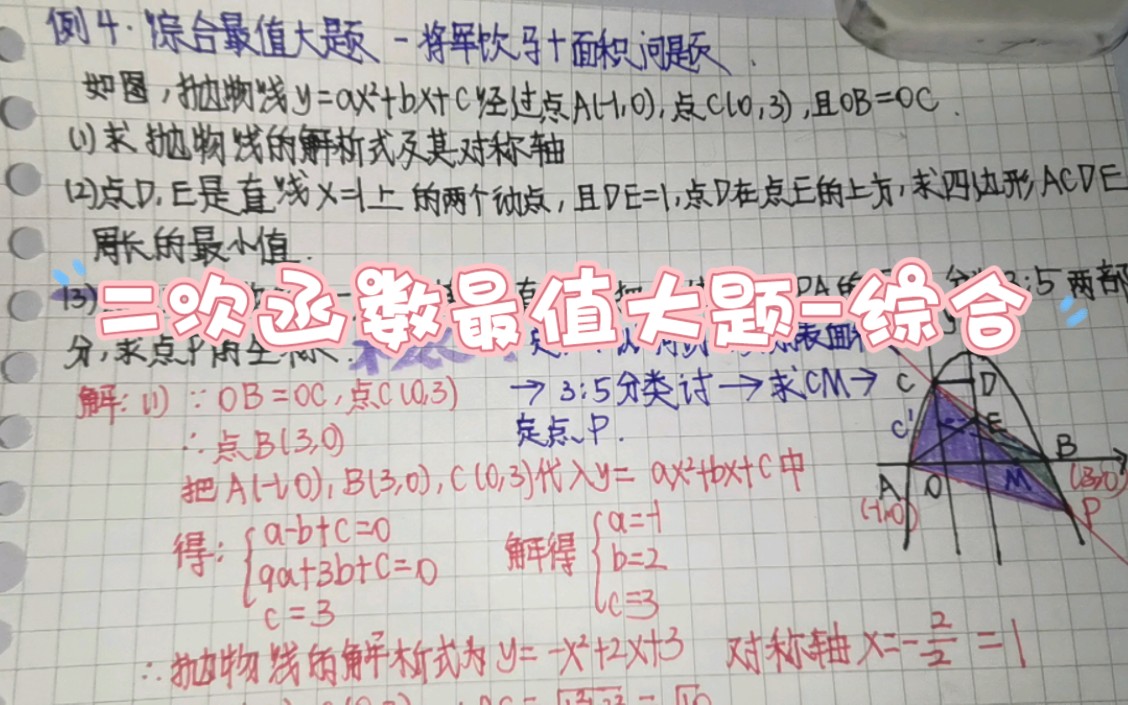 例4.综合最值大题-将军饮马+面积问题.
如图,抛物线y=ax²+bx+c经过点A(-1,0),点C(0,3),且OB=OC.
(1)求抛物线的解析式及其对称轴
(2)点D,E是直线x=1上的两个动点,且DE=1,点D在点E的上方,求四边形ACDE
周长的最小值.
(3)
PA的
3:5两部
二次函数最值大题-综合
分,求点P的坐标.
→3:5分类讨→求CM→
定点P.
解:(1)∵OB=OC,点C(0,3)
∴点B(3,0)
把A(-1,0),B(3,0),C(0,3)代入y=ax²+bx+c中
得:
a-b+c=0
9a+3b+c=0
c=3
解得
a=-1
b=2
c=3
∴抛物线的解析式为y=-x²+2x+3 对称轴x=-2/2=1
C
D
C'
E
B
(3,0)
A
O
M
(-1,0)
P